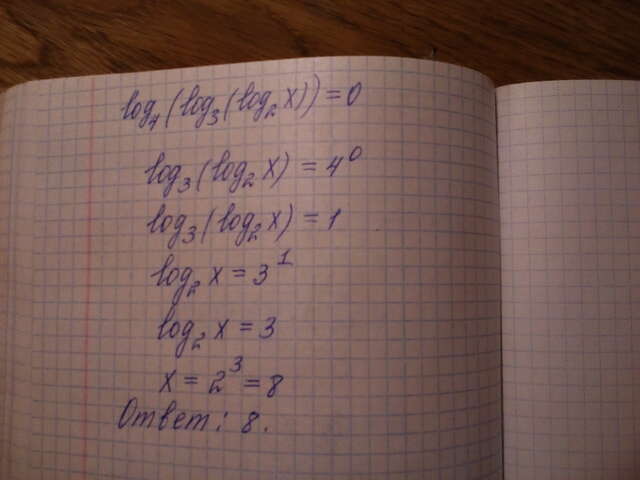 log₄(log₃(log₂x))=0
log₃(log₂x)=4⁰
log₃(log₂x)=1
log₂x=3¹
log₂x=3
x=2³=8
Ответ: 8.